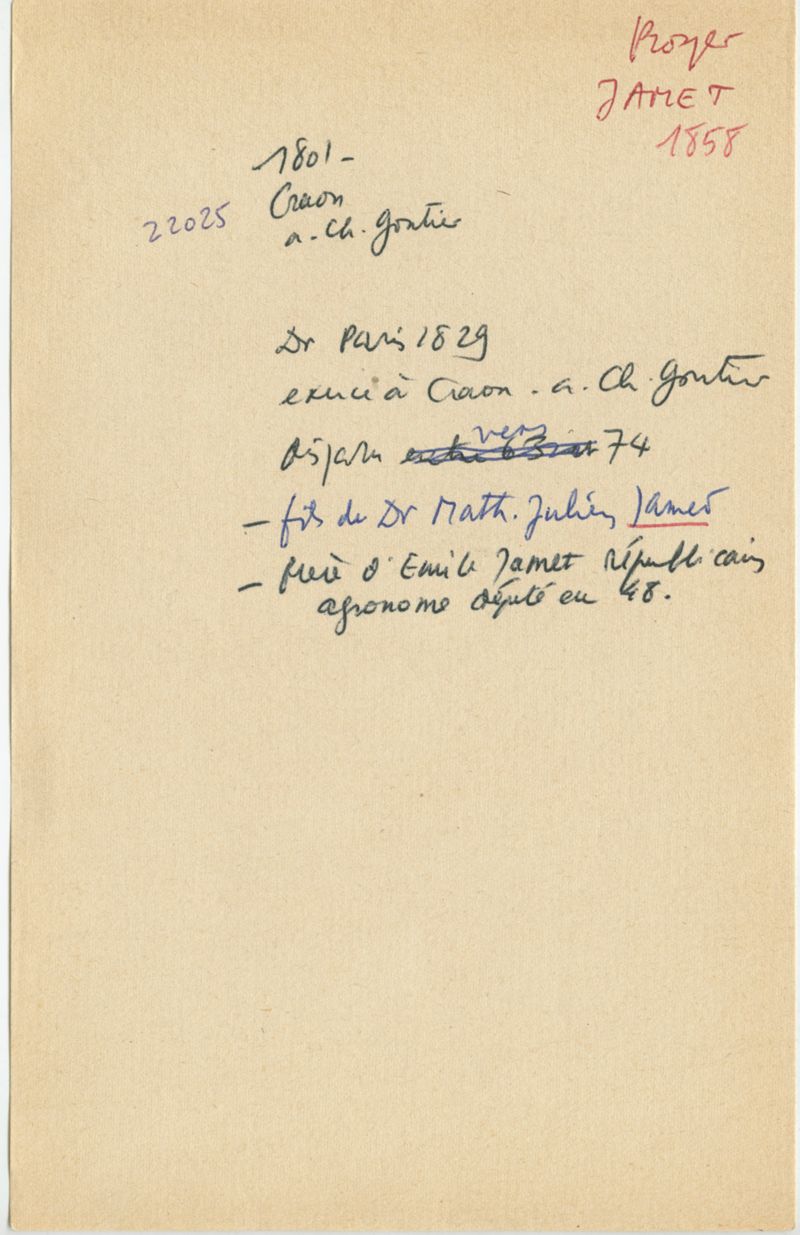 Royer
JAMET
1858
1801 -
Craon
22025
a. Ch. Gontier
Dr Paris 1829
exerce à Craon . a. Ch. Gontier
disparu entre 63 et vers 74
- fils de Dr Math. Julien Jamet
- frère d'Emile Jamet républicain
agronome député en 48.